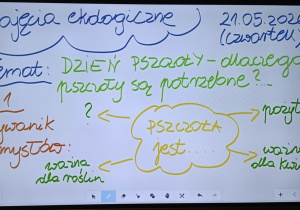 zajęcia ekologiczne 21.05.20
(czwartek)
Temat: DZIEŃ PSZCZOŁY - dlaczego
pszczoły są potrzebne?...
1
?
pozyt
ywanik
mysłów:
PSZCZOŁA
jest.....
ważna
dla roślin
ważna
dla